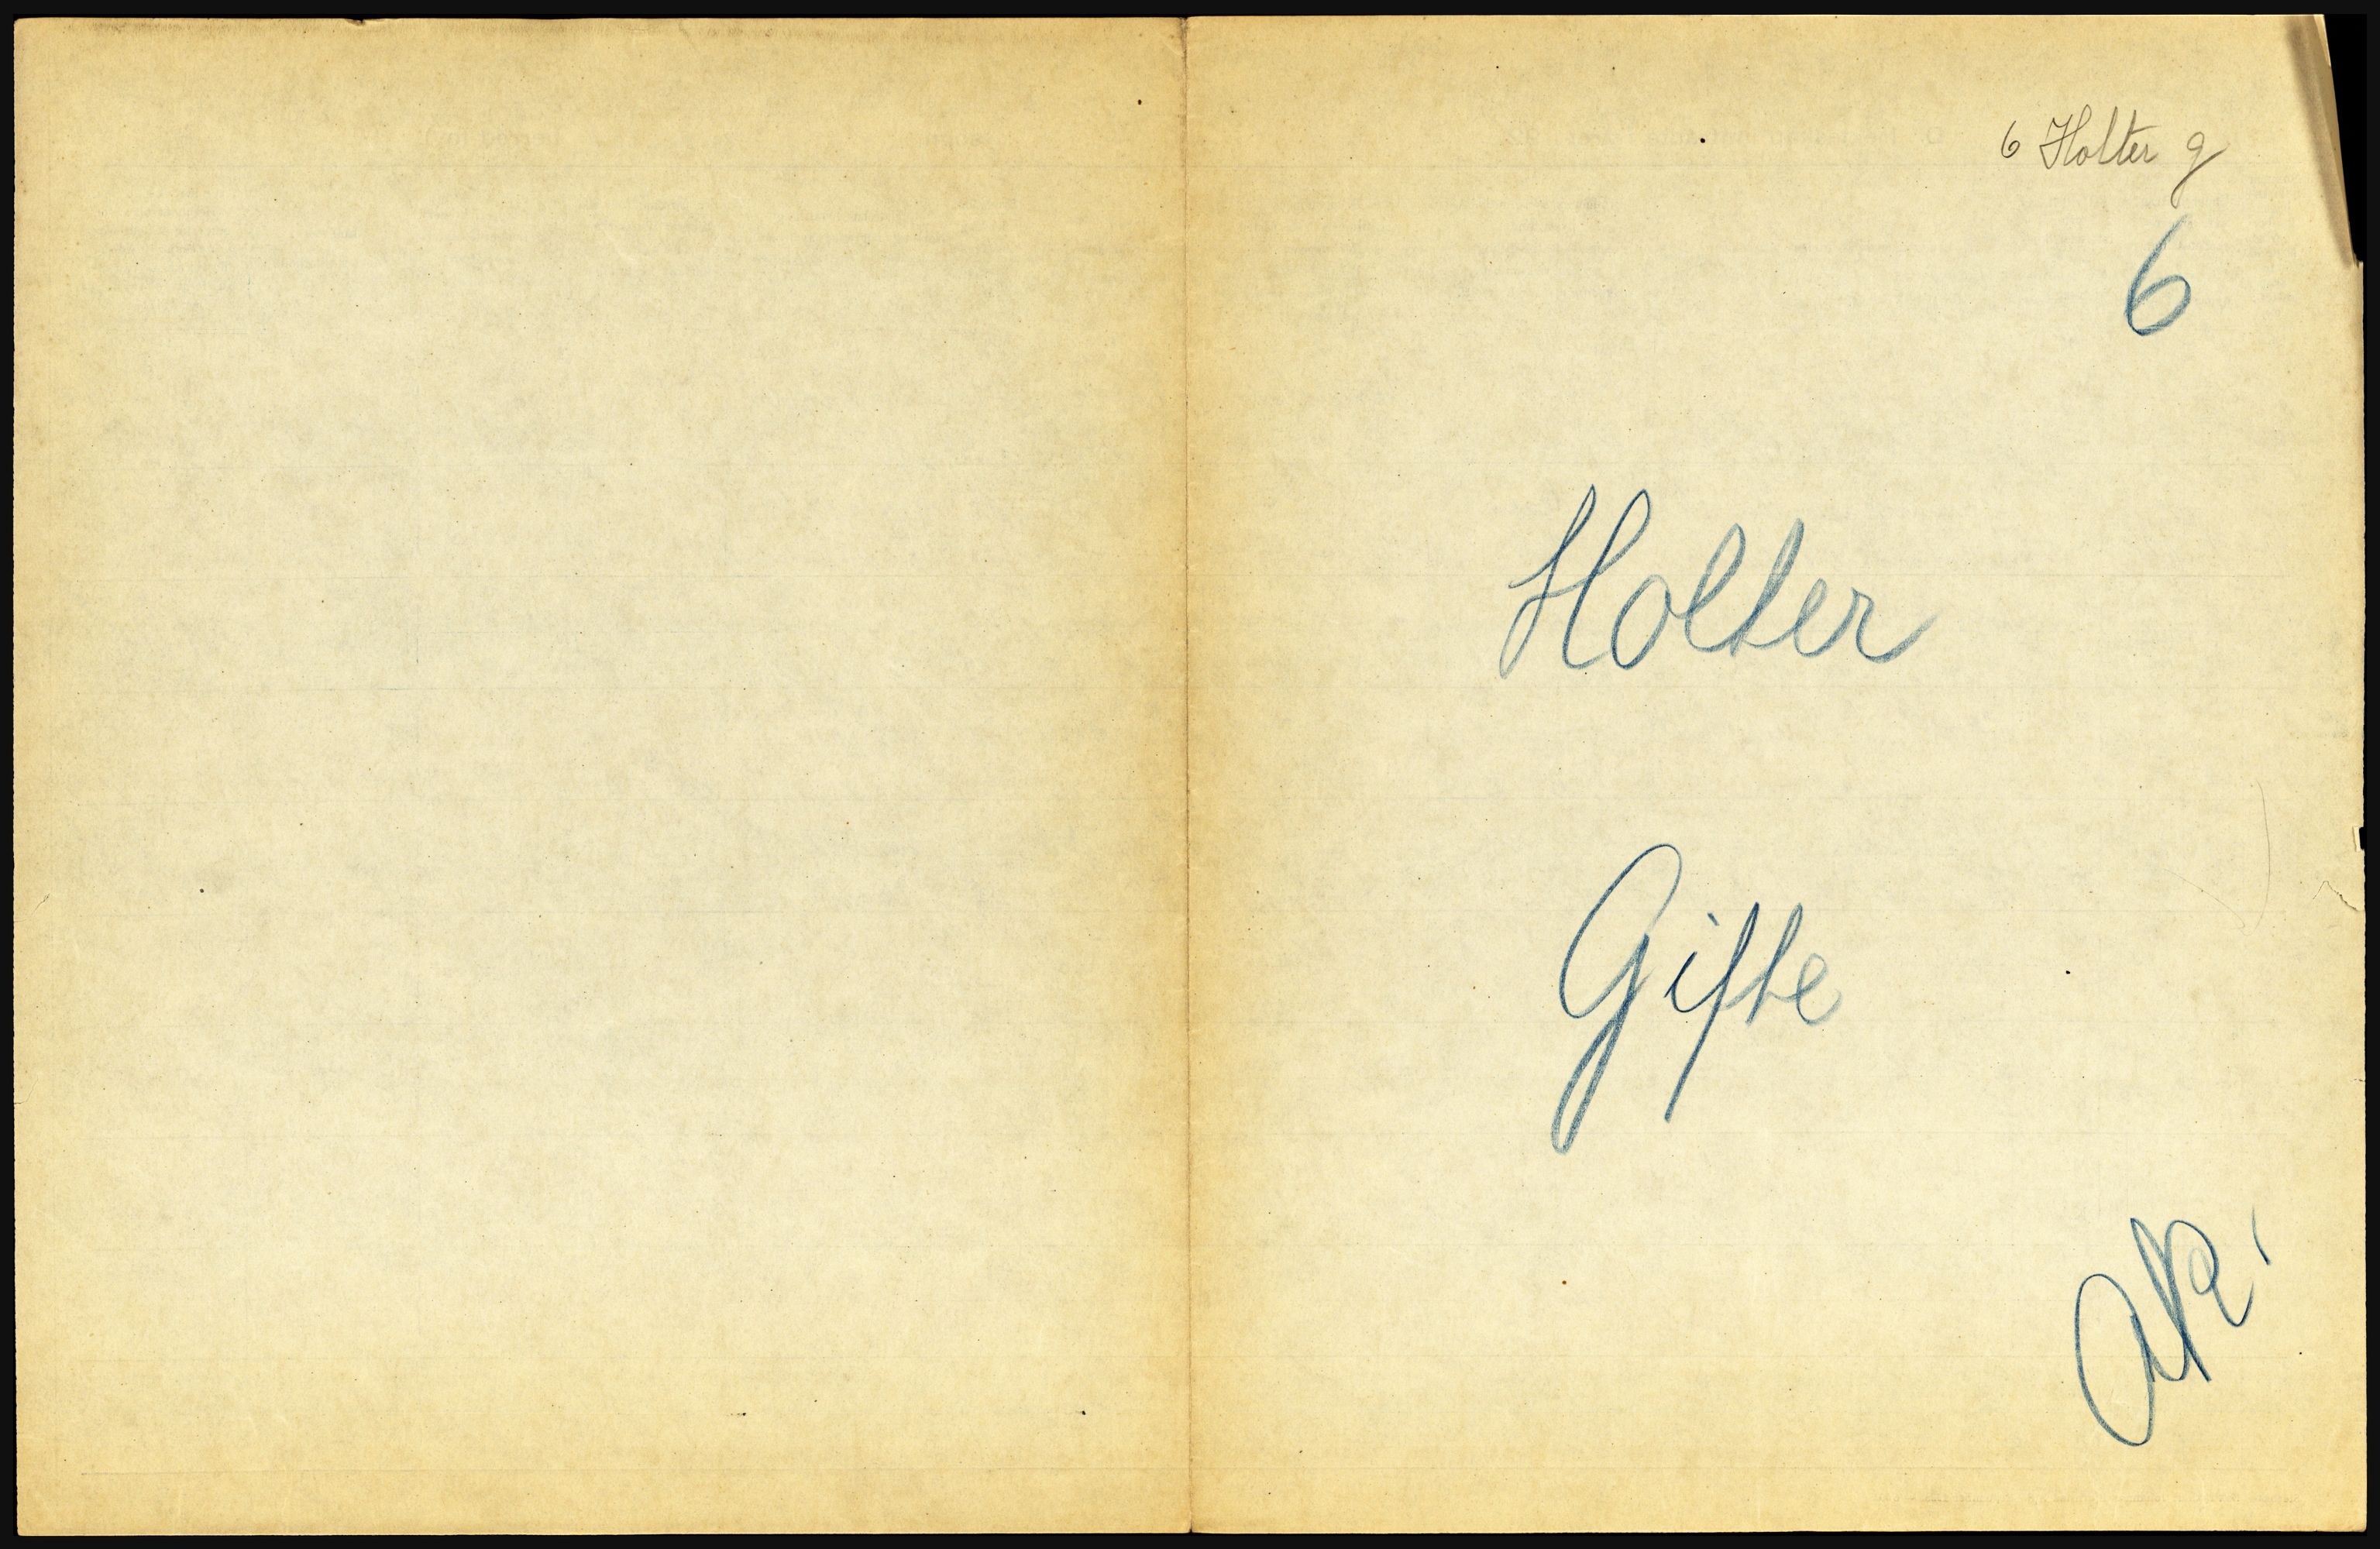 6 Holter g
6
Holter
Gifte
Ak.